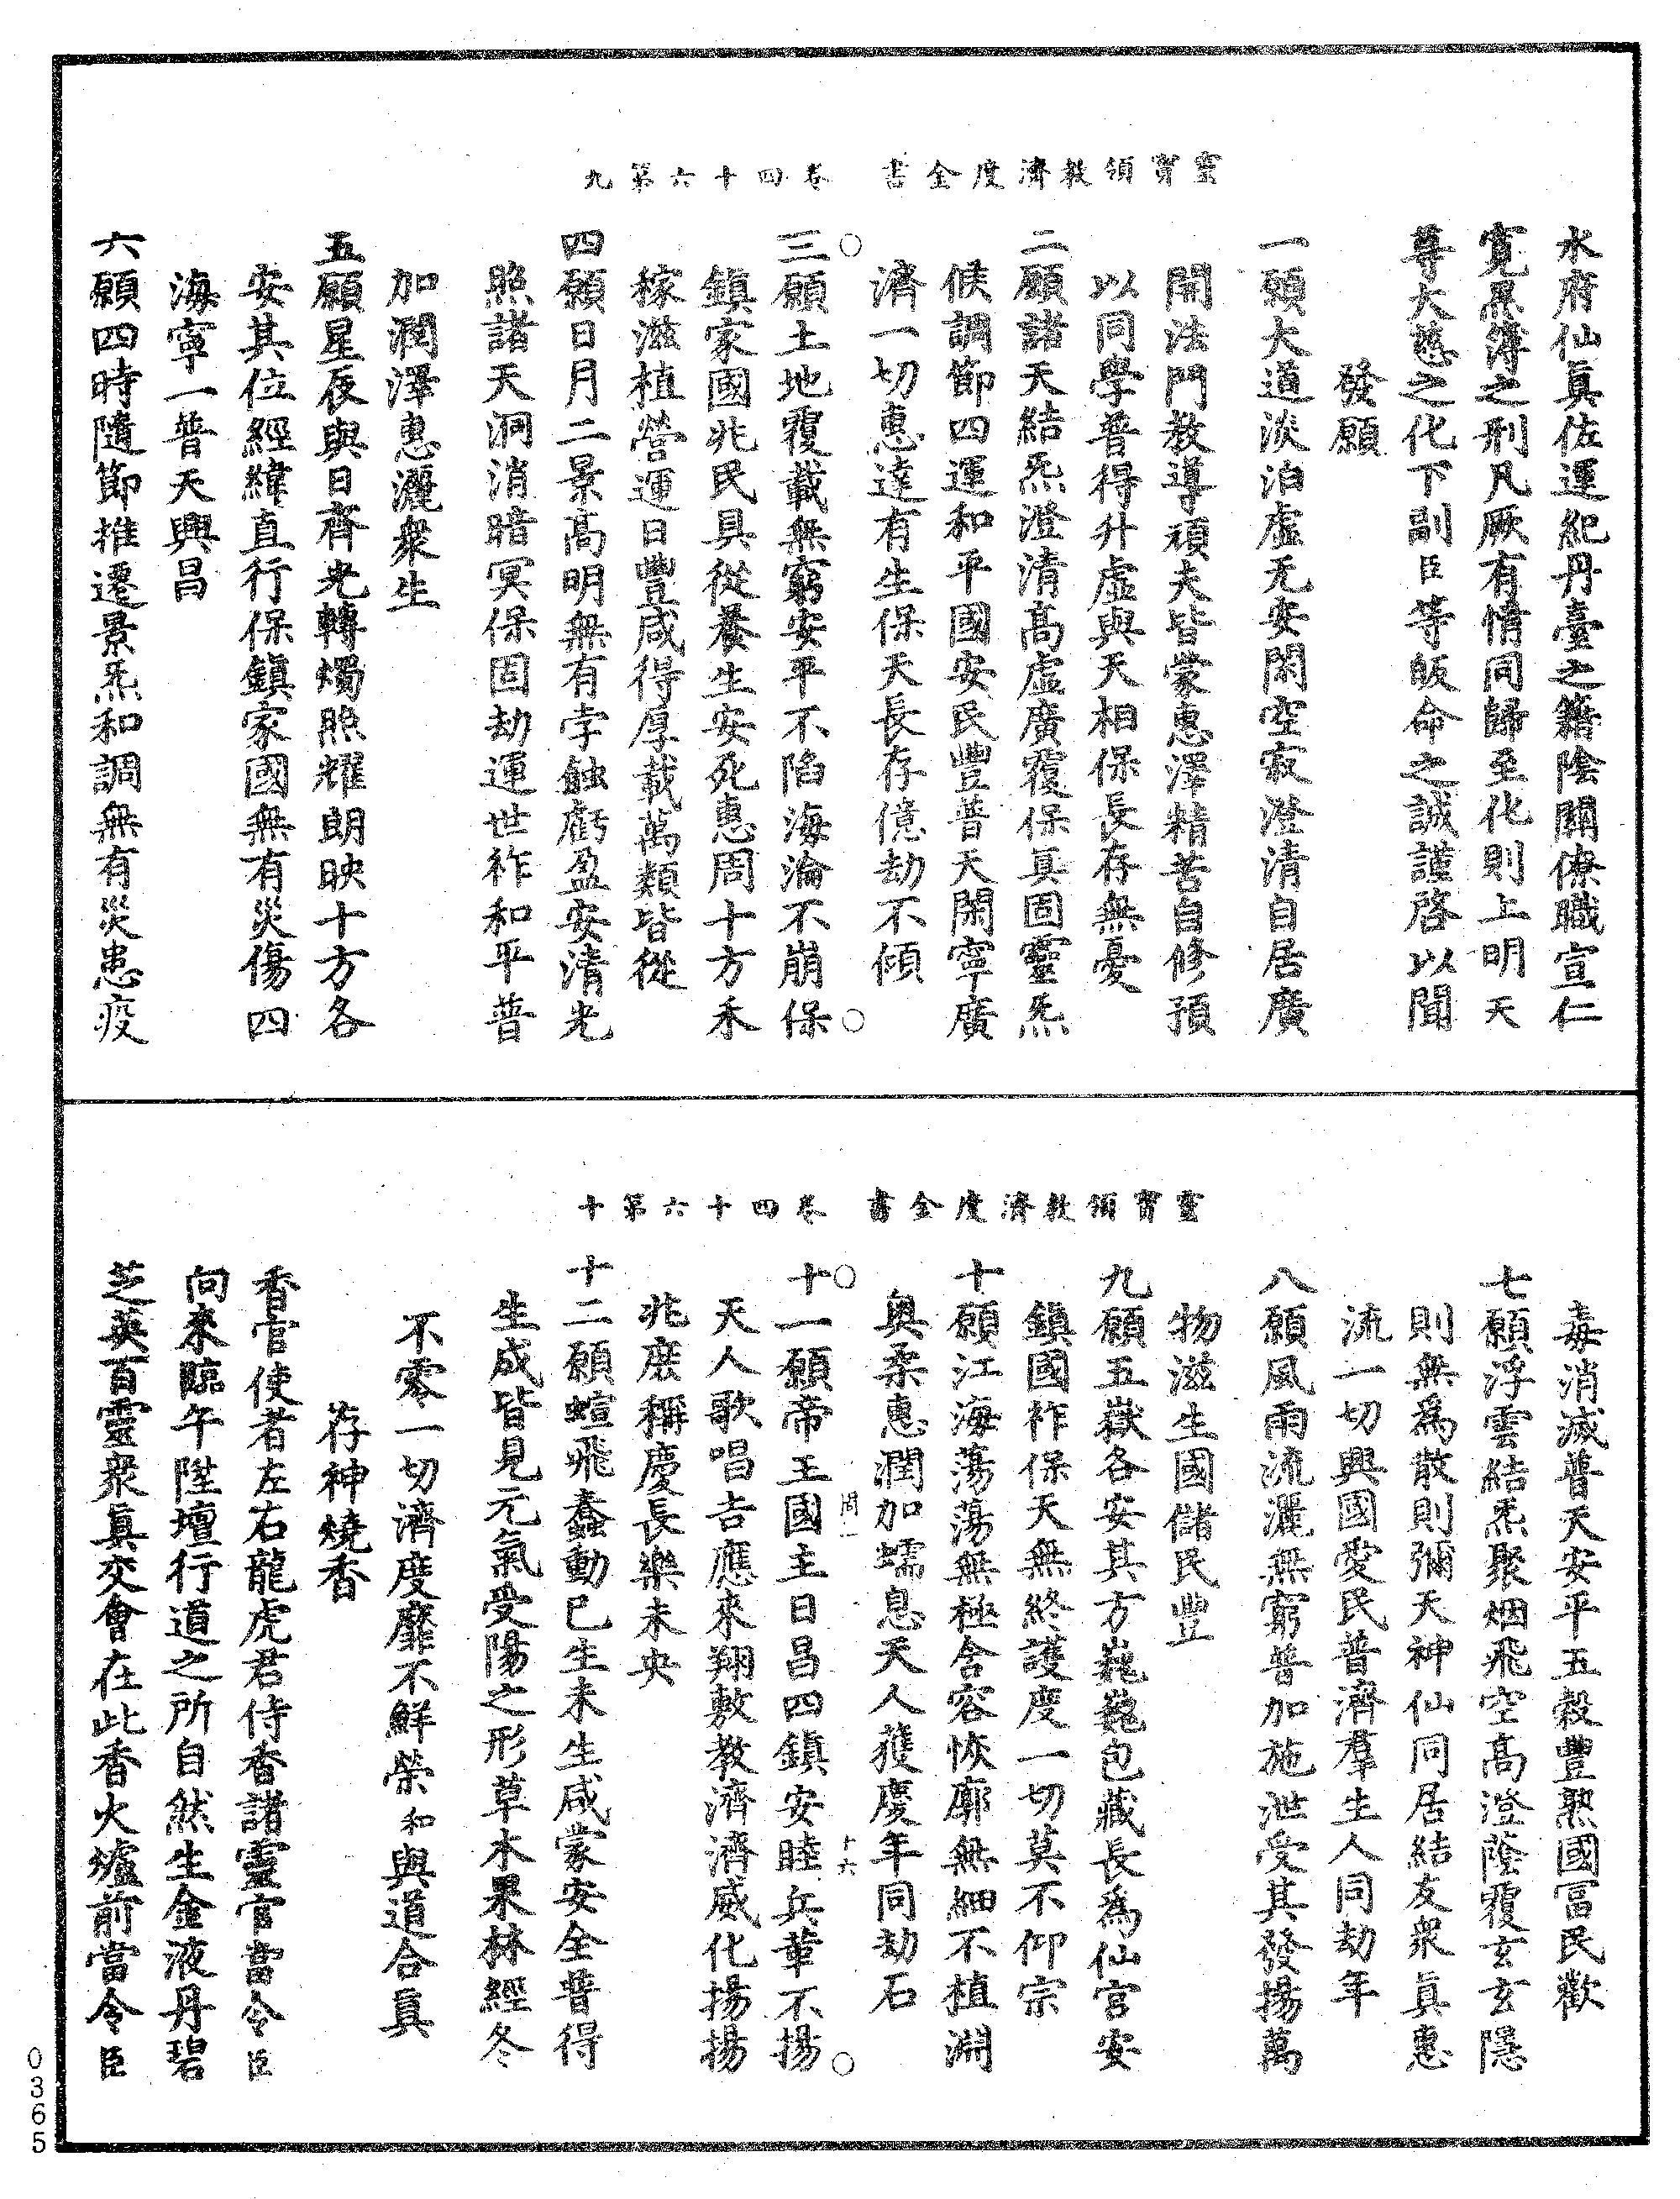 靈寶領教濟度金書　卷四十六第九
水府仙眞佐運紀丹臺之籍陰關僚職宣仁
寛黑簿之刑凡厥有情同歸至化則上明天
尊大慈之化下副臣等皈命之誠謹啓以聞
發願
一願大道淡泊虛无安閑空寂澄清自居廣
開法門教導頑夫皆蒙惠澤精苦自修預
以同學普得升虛與天相保長存無憂
二願諸天結炁澄清高虛廣覆保眞固靈炁
候調節四運和平國安民豐普天閑寧廣
濟一切惠達有生保天長存億劫不傾
三願土地覆載無窮安平不陷海淪不崩保
鎮家國兆民具從養生安死惠周十方禾
稼滋植營運日豐咸得厚載萬類皆從
四願日月二景高明無有孛蝕虧盈安清光
照諸天洞消暗冥保固劫運世祚和平普
加潤澤惠灑衆生
五願星辰與日齊光轉燭照耀朗映十方各
安其位經緯直行保鎮家國無有災傷四
海寧一普天興昌
六願四時隨節推遷景炁和調無有災患疫
靈寶領教濟度金書　卷四十六第十
毒消滅普天安平五穀豐熟國富民歡
七願浮雲結炁聚烟飛空高澄蔭覆玄玄隱
則無爲散則彌天神仙同居結友衆眞惠
流一切興國愛民普濟羣生人同劫年
八願風雨流灑無窮普加施泄受其發揚萬
物滋生國儲民豐
九願五嶽各安其方巍巍包藏長爲仙宮安
鎮國祚保天無終護度一切莫不仰宗
十願江海蕩蕩無極含容恢廓無細不植淵
奥柔惠潤加蠕息天人獲慶年同劫石
周一　十六
十一願帝王國主日昌四鎮安睦兵革不揚
天人歌唱吉應來翔敷教濟濟威化揚揚
兆庶稱慶長樂未央
十二願蝖飛蠢動已生未生咸蒙安全普得
生成皆見元氣受陽之形草木果林經冬
不零一切濟度靡不鮮榮和與道合眞
存神燒香
香官使者左右龍虎君侍香諸靈官當令臣
向來臨午陞壇行道之所自然生金液丹碧
芝英百靈衆眞交會在此香火爐前當令臣
0365